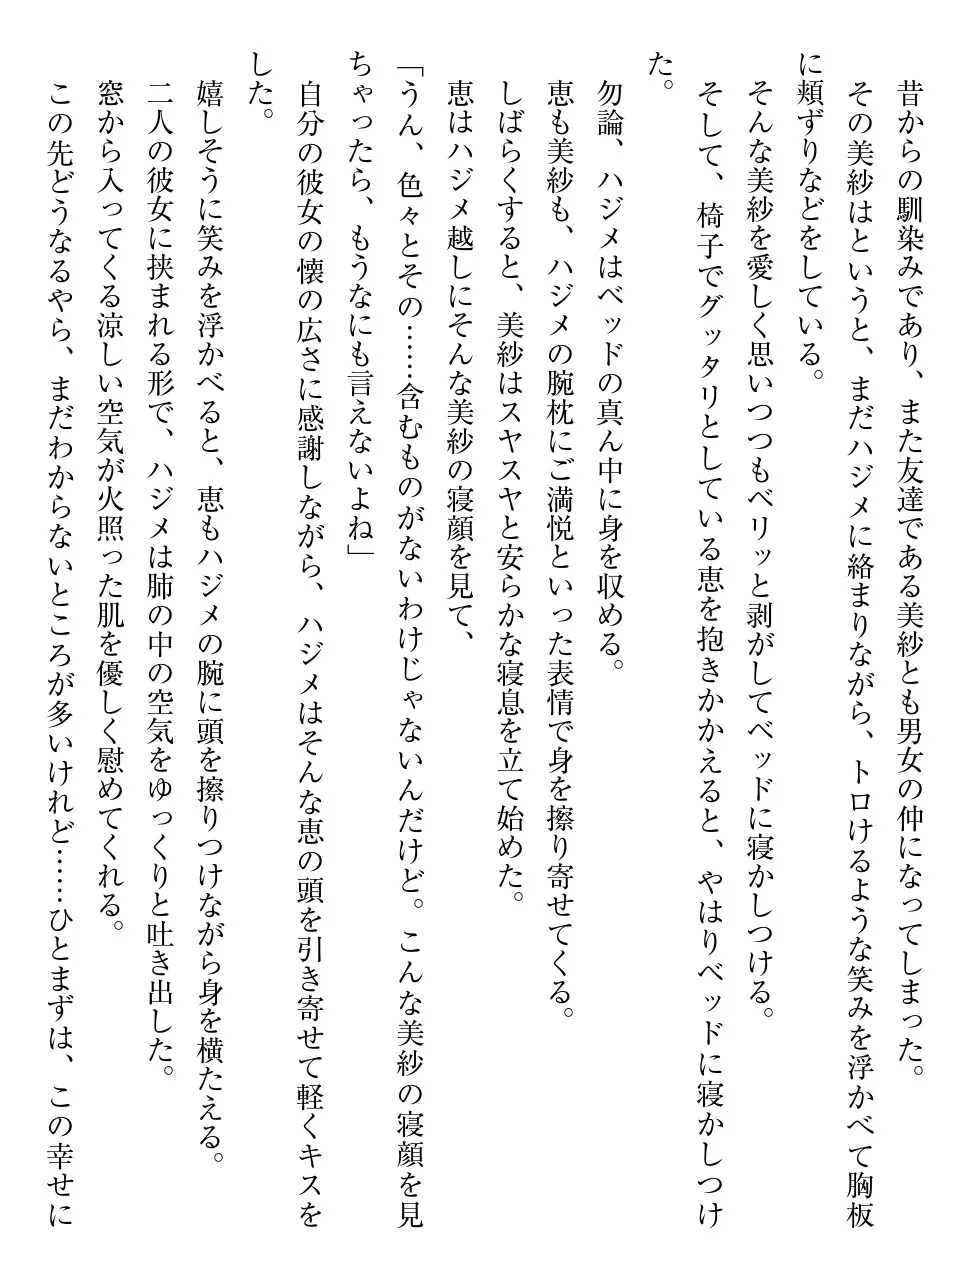 昔からの馴染みであり、また友達である美紗とも男女の仲になってしまった。
その美紗はというと、まだハジメに絡まりながら、トロけるような笑みを浮かべて胸板
に頬ずりなどをしている。
そんな美紗を愛しく思いつつもベリッと剥がしてベッドに寝かしつける。
そして、椅子でグッタリとしている恵を抱きかかえると、やはりベッドに寝かしつけ
た。
勿論、ハジメはベッドの真ん中に身を収める。
恵も美紗も、ハジメの腕枕にご満悦といった表情で身を擦り寄せてくる。
しばらくすると、美紗はスヤスヤと安らかな寝息を立て始めた。
恵はハジメ越しにそんな美紗の寝顔を見て、
「うん、色々とその……含むものがないわけじゃないんだけど。こんな美紗の寝顔を見
ちゃったら、もうなにも言えないよね」
自分の彼女の懐の広さに感謝しながら、ハジメはそんな恵の頭を引き寄せて軽くキスを
した。
嬉しそうに笑みを浮かべると、恵もハジメの腕に頭を擦りつけながら身を横たえる。
二人の彼女に挟まれる形で、ハジメは肺の中の空気をゆっくりと吐き出した。
窓から入ってくる涼しい空気が火照った肌を優しく慰めてくれる。
この先どうなるやら、まだわからないところが多いけれど……ひとまずは、この幸せに